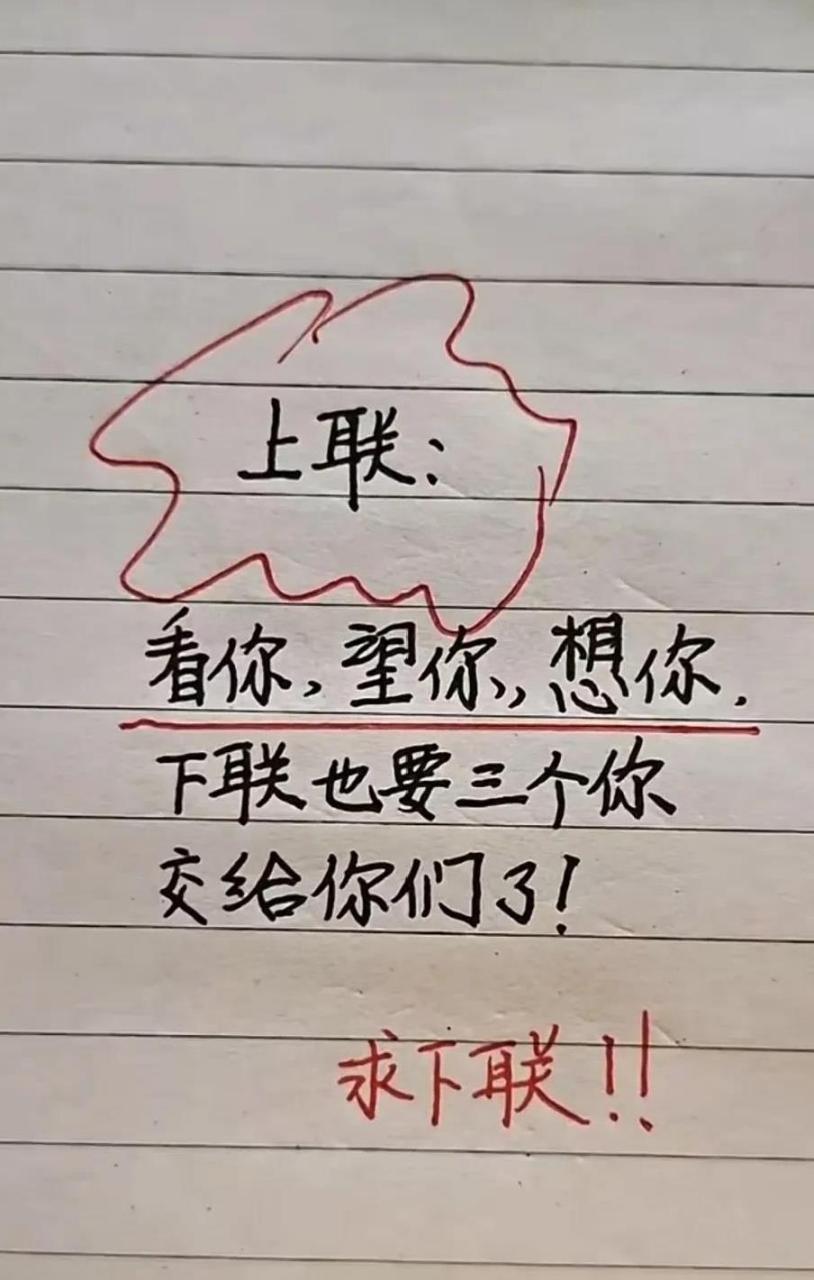 上联:
看你,望你,,想你.
下联也要三个你
交给你们了!
求下联!!